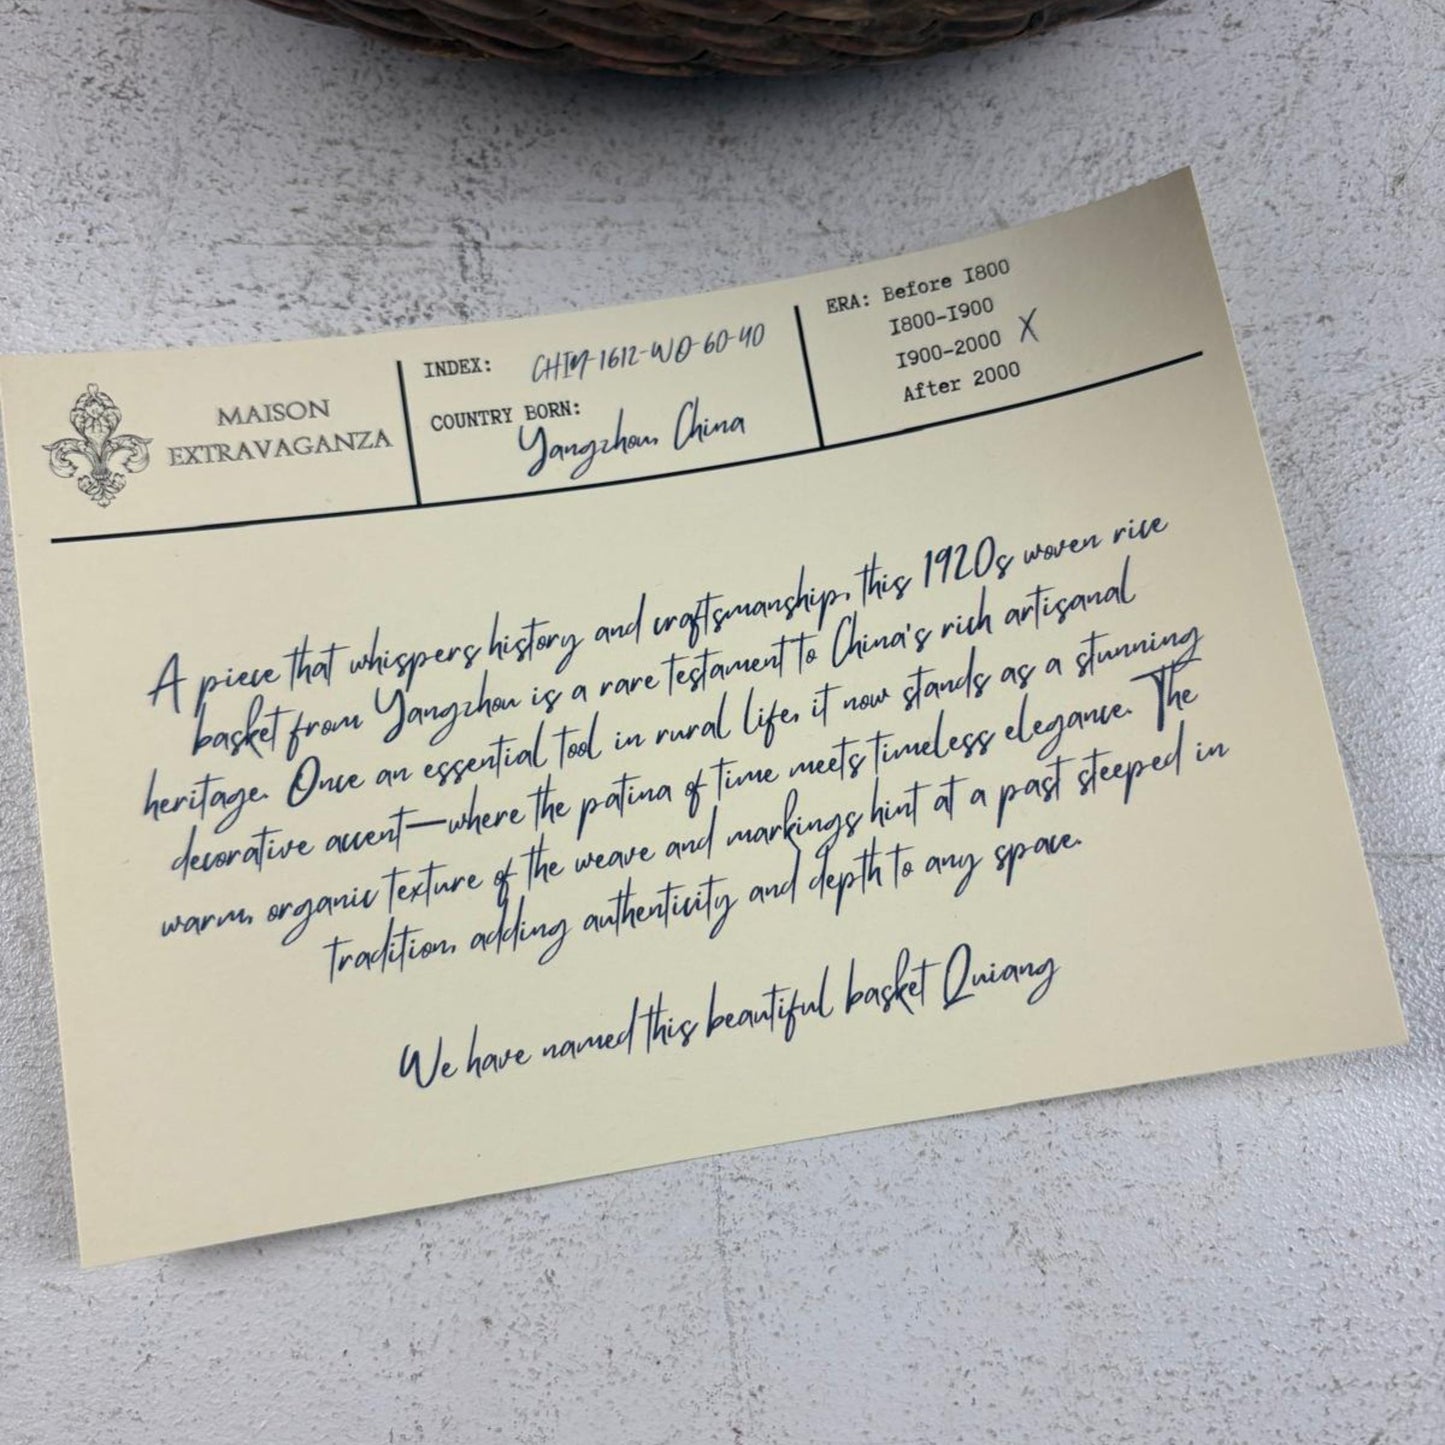 MAISON
EXTRAVAGANZA
INDEX: CHIN-1612-WO-60-40
COUNTRY BORN:
Yangzhou, China
ERA: Before 1800
1800-1900
1900-2000 X
After 2000
A piece that whispers history and craftsmanship, this 1920s woven rice
basket from Yangzhou is a rare testament to China's rich artisanal
heritage. Once an essential tool in rural life, it now stands as a stunning
decorative accent—where the patina of time meets timeless elegance. The
warm, organic texture of the weave and markings hint at a past steeped in
tradition, adding authenticity and depth to any space.
We have named this beautiful basket Quiang